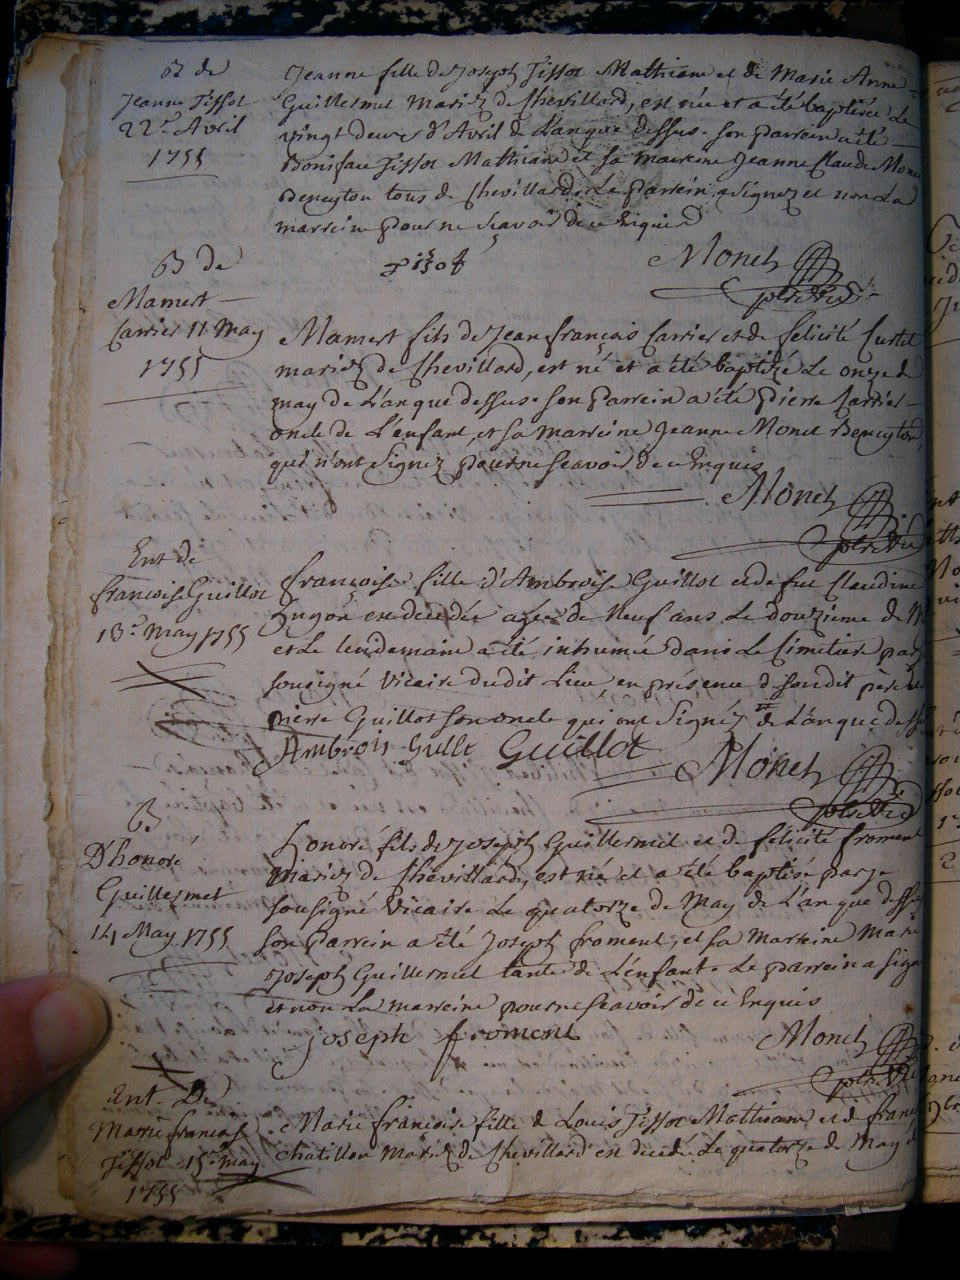 B de
Jeanne Tissot
22e Avril
1755
Jeanne fille de Joseph Tissot Mathieam et de Marie Anne
Guillermet mariez de Chevillard, est née et a été baptisée Le
vingt deux d'Avril de L'an que dessus. son parrein a été
Boniface Tissot Mathieam et sa marreine Jeanne Claude Mone
Beneyton tous de Chevillard. Le parrein a Signez et non La
marreine pour ne Scavoir de ce Enquis
Monet
ptre Vic
B de
Mamert
Carrier 11 May
1755
Mamert fils de Jean françois Carrier et de felicité Curtet
mariez de Chevillard, est né et a été baptizé Le onze de
may de L'an que dessus. son Parrein a été pierre Carrier
oncle de L'enfant, et sa marreine Jeanne Monet Beneyton
qui n'ont Signez pour ne Scavoir de ce Enquis
Monet
ptre Vic
Ent de
francoise Guillot
13e May 1755
françoise fille d'Ambroise Guillot et de fut Claudine
en decedée agée de Neuf ans Le douzieme de M
et Le lendemain a été inhumée dans Le Cimetier par
sousigné Vicaire dudit Lieu en presence de soudit pere et
pierre Guillot son oncle qui ont Signéz de L'an que dessu
Ambrois Gullt Guillot Monet
ptre Vic
B
D'honoré
Guillermet
14 May 1755
honoré fils de Joseph Guillermet et de felicité froment
mariez de Chevillard, est né et a été baptisé par je
sousigné Vicaire Le quatorze de May de L'an que dessus
son Parrein a été Joseph froment, et sa Marreine Marie
Joseph Guillermet tante de L'enfant. Le parrein a Signé
et non La marreine pour ne Scavoir de ce Enquis
joseph froment Monet
ptre Vic
Ent. De
Marie francoise
Tissot 15e may
1755
Marie françoise fille de Louis Tissot Mathieam et de franç
chatillon Mariez de Chevillard en decedé Le quatorze de May d